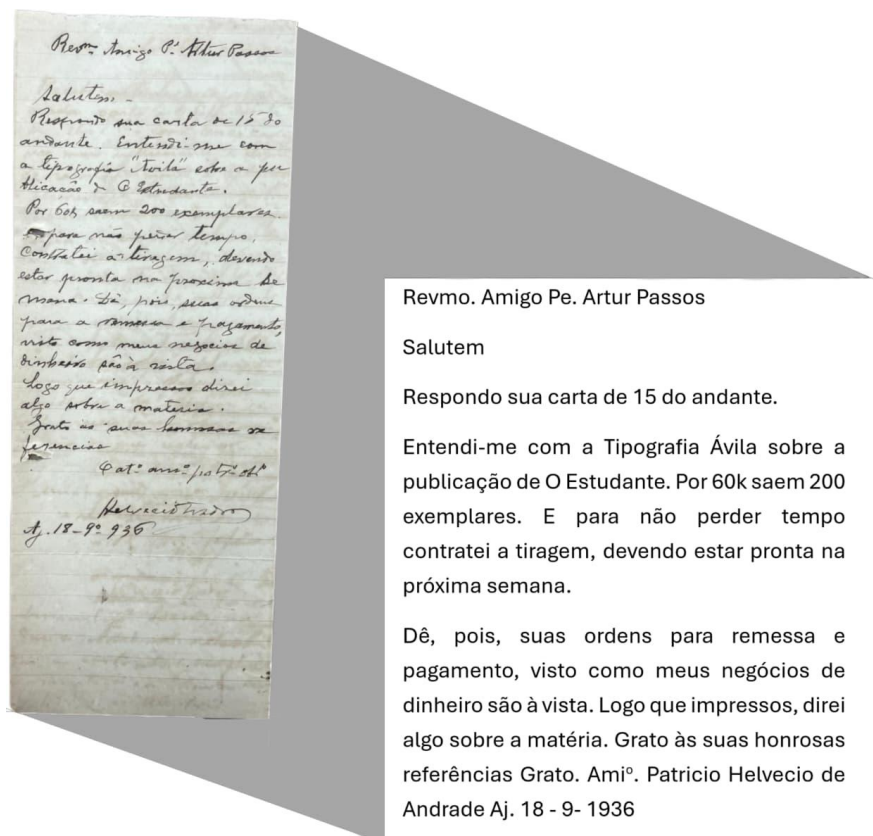 Revmo Amigo P. Artur Passos
Salutem.
Respondo sua carta de 15 do
andante. Entendi-me com
a tipografia "Avila" sobre a pu
blicacão de O Estudante.
Por 60$ saem 200 exemplares.
para não perder tempo,
contratei a tiragem, devendo
estar pronta na proxima Se
mana. Dê, pois, suas ordens
para a remessa e pagamento,
visto como meus negocios de
dinheiro são à vista.
Logo que impressos direi
algo sobre a materia.
Grato às suas honrosas re
ferencias
Aj. 18-9º-936
Revmo. Amigo Pe. Artur Passos
Salutem
Respondo sua carta de 15 do andante.
Entendi-me com a Tipografia Ávila sobre a
publicação de O Estudante. Por 60k saem 200
exemplares. E para não perder tempo
contratei a tiragem, devendo estar pronta na
próxima semana.
Dê, pois, suas ordens para remessa e
pagamento, visto como meus negócios de
dinheiro são à vista. Logo que impressos, direi
algo sobre a matéria. Grato às suas honrosas
referências Grato. Amiº. Patricio Helvecio de
Andrade Aj. 18 - 9- 1936